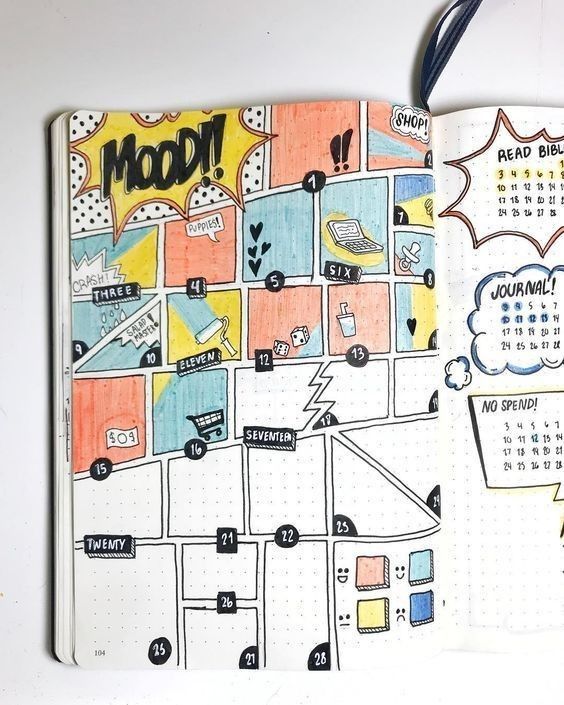 MOOD!!
!!
SHOP!
1
PUPPIES!
7
CRASH!
THREE
4
5
SIX
8
SALAD
MASTER
9
10
ELEVEN
12
13
$0$
15
16
SEVENTEEN
18
TWENTY
21
22
23
26
25
27
28
104
READ BIBL
3 4 5 6 7 8
10 11 12 13 14 15
17 18 19 20 21
24 25 26 27 28
JOURNAL!
3 4 5 6 7
10 11 12 13 14
17 18 19 20 21
24 25 26 27 28
NO SPEND!
3 4 5 6 7
10 11 12 13 14
17 18 19 20 21
24 25 26 27 28